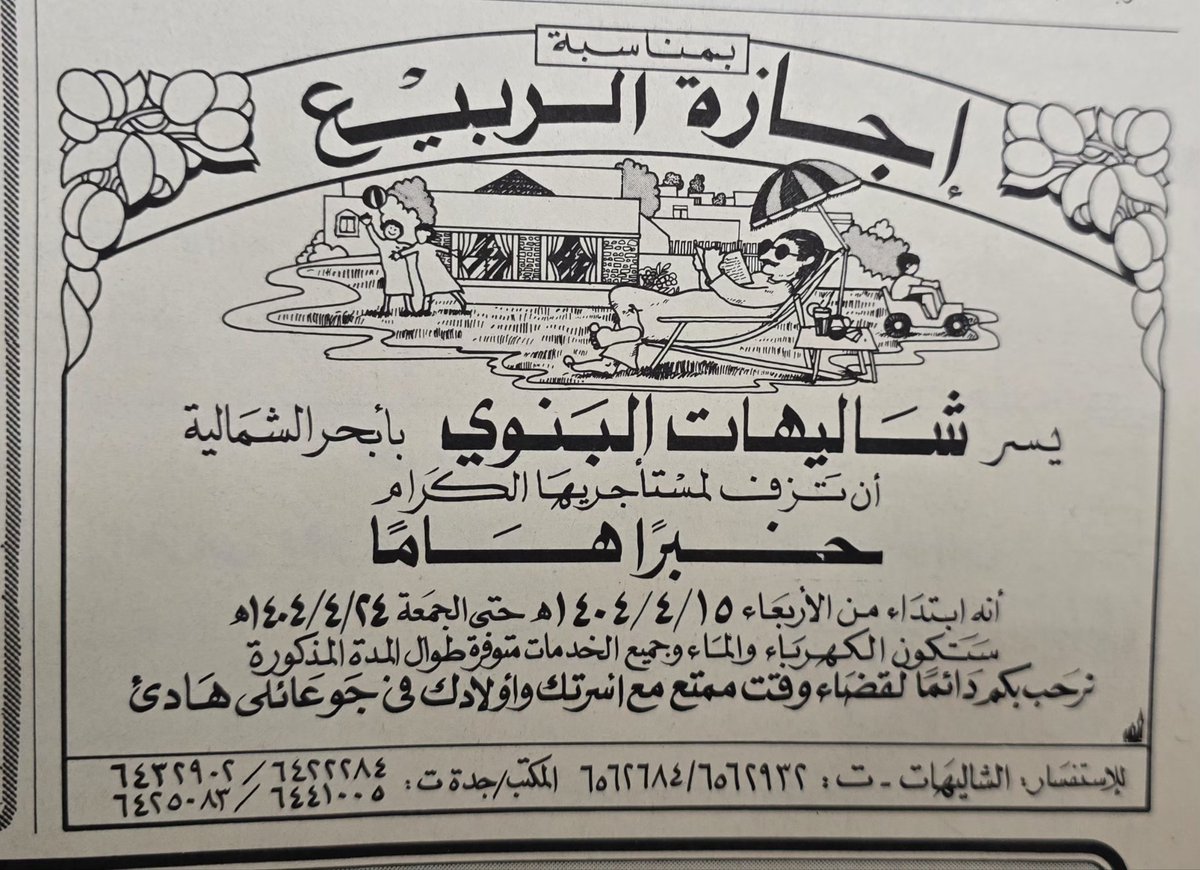 بمناسبة
إجازة الربيع
يسر شاليهات البنوي بأبحر الشمالية
أن تزف لمستأجريها الكرام
خبرًا هامًا
أنه ابتداء من الأربعاء ١٤٠٤/٤/١٥ه حتى الجمعة ١٤٠٤/٤/٢٤ه
ستكون الكهرباء والماء وجميع الخدمات متوفرة طوال المدة المذكورة
نرحب بكم دائمًا لقضاء وقت ممتع مع أسرتك وأولادك في جو عائلي هادئ
للإستفسار: الشاليهات - ت: ٦٥٦٢٦٨٤/٦٥٦٢٩٣٢ المكتب/جدة ت: ٦٤٣٢٩٠٢/٦٤٢٢٢٨٤
٦٤٢٥٠٨٣/٦٤٤١٠٠٥